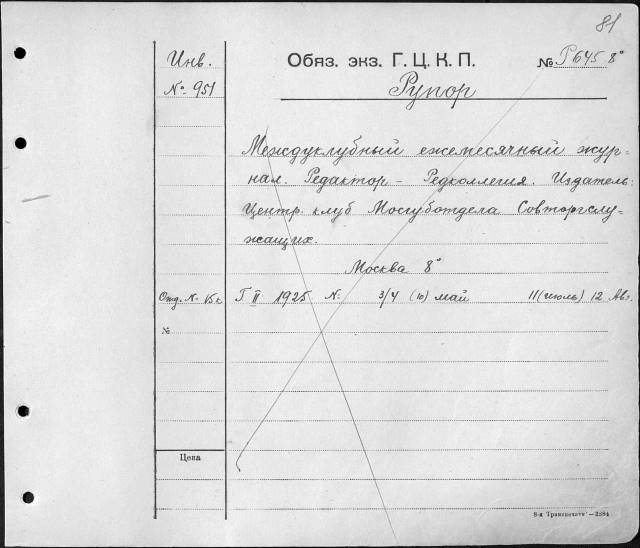 81
Инв.
№ 951
Обяз. экз. Г. Ц. К. П.
№ Р645 8°
Рупор
Междуклубный ежемесячный жур=
нал. Редактор – Редколлегия. Издатель:
Центр. клуб Мосгуботдела Совторгслу=
жащих.
Москва 8°
Г II 1925 № 3/4 (10) май 11 (июль) 12 Авг.
№
Цена